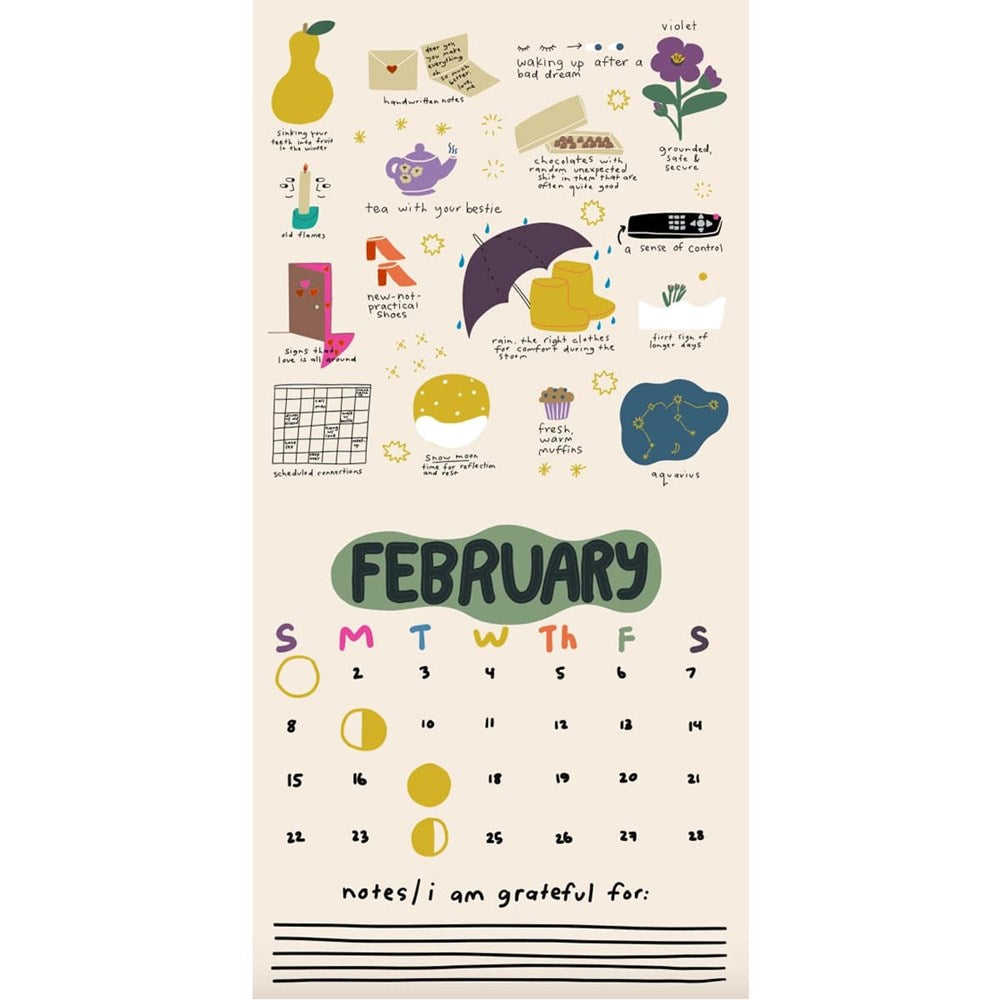 violet
dear you,
you make
everything
so much
better
love,
me
waking up after a
bad dream
handwritten notes
sinking your
teeth into fruit
in the winter
grounded,
safe &
secure
chocolates with
random unexpected
shit in them that are
often quite good
tea with your bestie
old flames
a sense of control
new-not-
practical
shoes
rain. the right clothes
for comfort during the
storm
first sign of
longer days
signs that
love is all around
scheduled connections
snow moon
time for reflection
and rest
fresh,
warm
muffins
aquarius
FEBRUARY
S M T W Th F S
2 3 4 5 6 7
8 10 11 12 13 14
15 16 18 19 20 21
22 23 25 26 27 28
notes/i am grateful for: